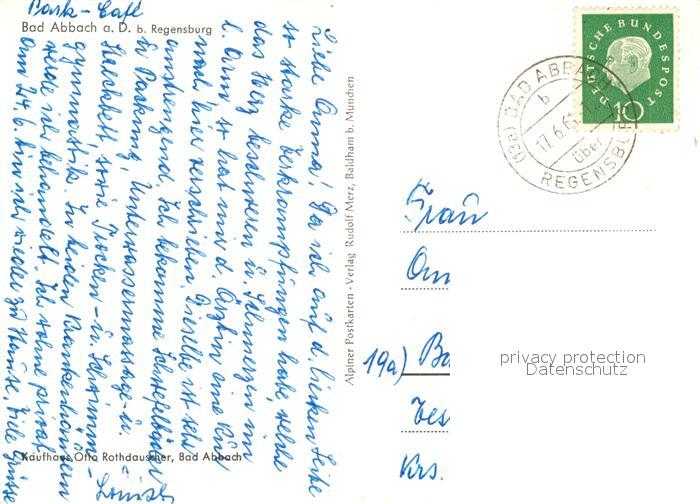 Park-Café
Bad Abbach a. D. b. Regensburg
Liebe Anna! Da ich auf d. linken Seite
so starke Verkrampfungen habe, welche
das Herz beschweren u. Schmerzen im
l. Arm so hat mir d. Ärztin eine Kur
nach hier verschrieben. Dieselbe ist sehr
anstrengend. Ich bekomme Schwefelbäder
Packung, Unterwassermassage u.
sowie Trocken- u. Schwimm-
gymnastik. In beiden Krankenhäusern
werde ich behandelt. Ich wohne privat
Am 24.6. bin ich wieder zu Hause. Viele Grüsse
Kaufhaus Otto Rothdauscher, Bad Abbach
Alpiner Postkarten - Verlag Rudolf Merz, Baldham b. München
DEUTSCHE BUNDESPOST
10
(13a) BAD ABBACH
b
17.6.6
über
REGENSBURG
Frau
19a)
Krs.
privacy protection
Datenschutz